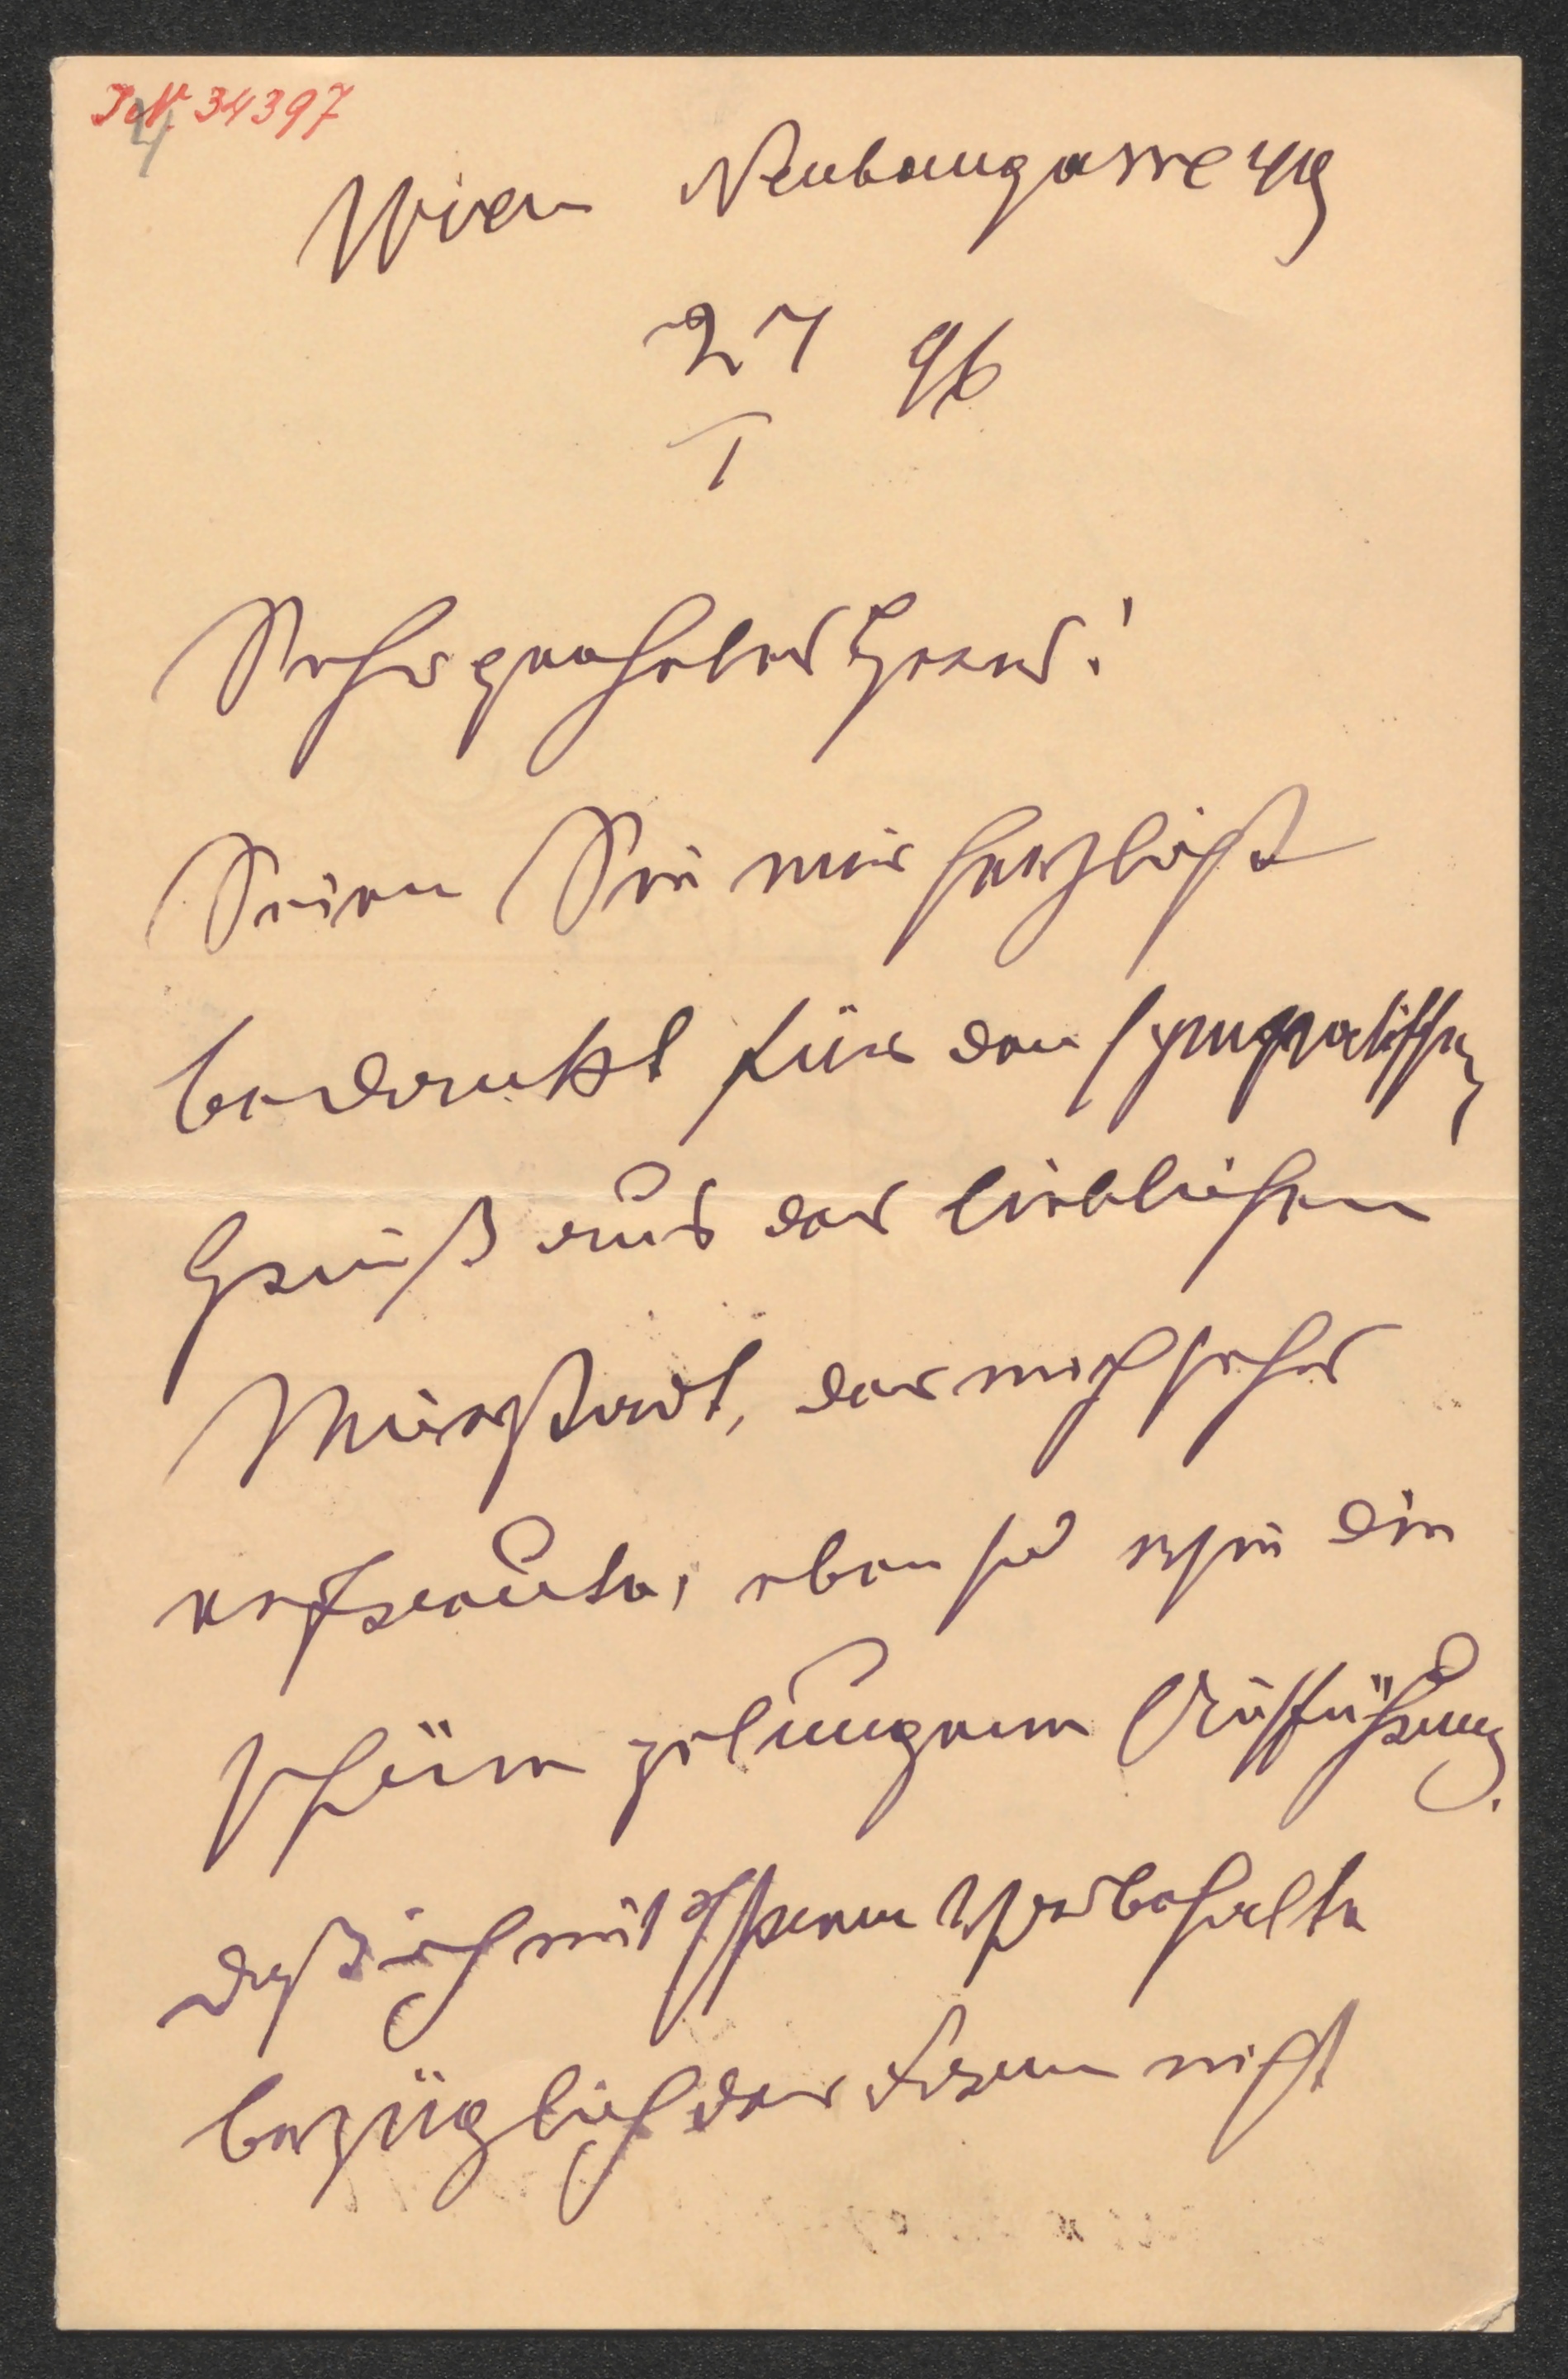 I.N. 34397
4
Wien Neubaugasse 49
27 96
I
Sehr geehrter Herr!
Seien Sie mir herzlichst
bedankt für den sympathischen
Gruß aus der lieblichen
Murstadt, der mich sehr
erfreute, eben so wie die
schöne gelungene Aufführung.
daß ich mit Ihrem Vorbehalte
bezüglich der Form nicht